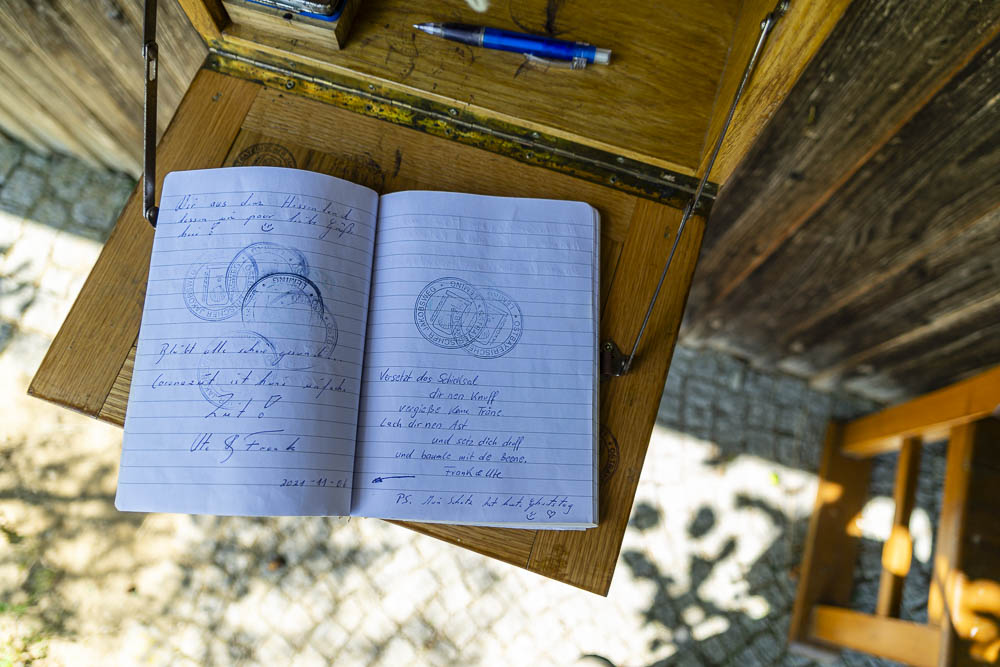 Wir aus dem Hessenland
lassen ein paar liebe Grüße
hier!
Bleibt alle schön gesund...
Coronazeit ist keine einfache
Zeit!
Ute & Frank
2021-11-06
OSTBAYERISCHER JAKOBSWEG
Versetzt das Schicksal
dir nen Knuff
vergieße keine Träne.
Lach dir nen Ast
und setz dich druff
und baumle mit de Beene.
Frank & Ute
P.S. Mein Schatz hat heute Geburtstag